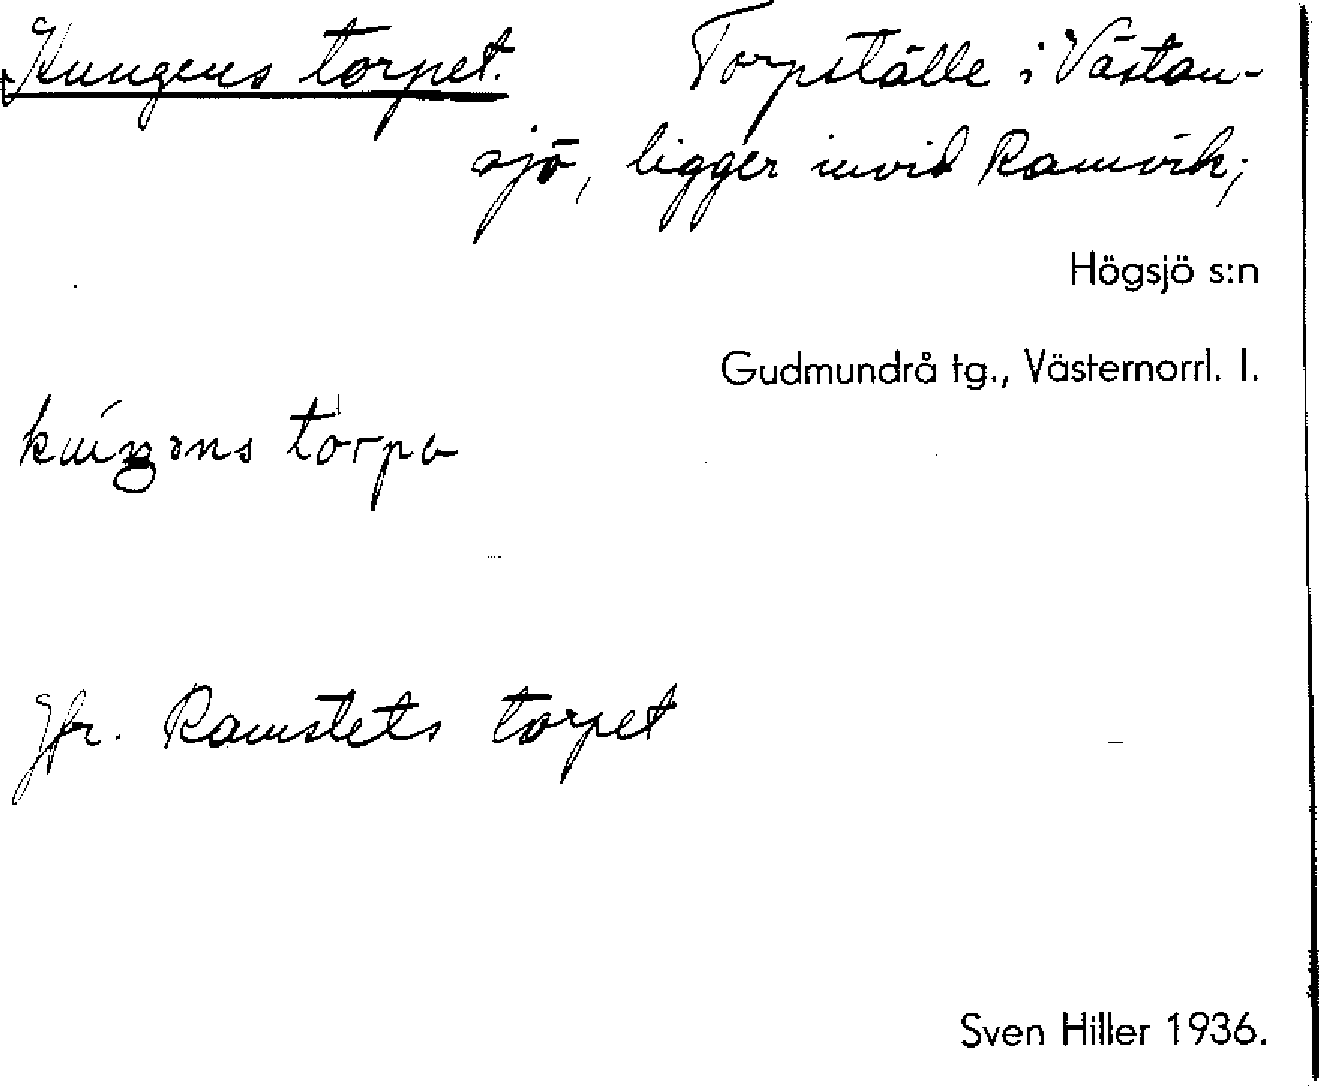 Kungens torpet. Torpställe i Västan-
sjö, ligger invid Ramvik;
Högsjö s:n
Gudmundrå tg., Västernorrl. l.
torpə
Jfr. Ramstets torpet
Sven Hiller 1936.